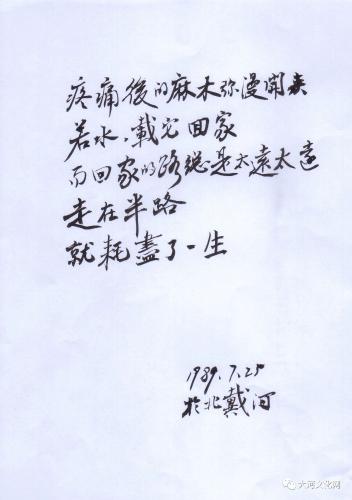 疼痛後的麻木弥漫開来
若水,載它回家
而回家的路总是太遠太遠
走在半路
就耗盡了一生
1989.7.25
於北戴河
大河文化网